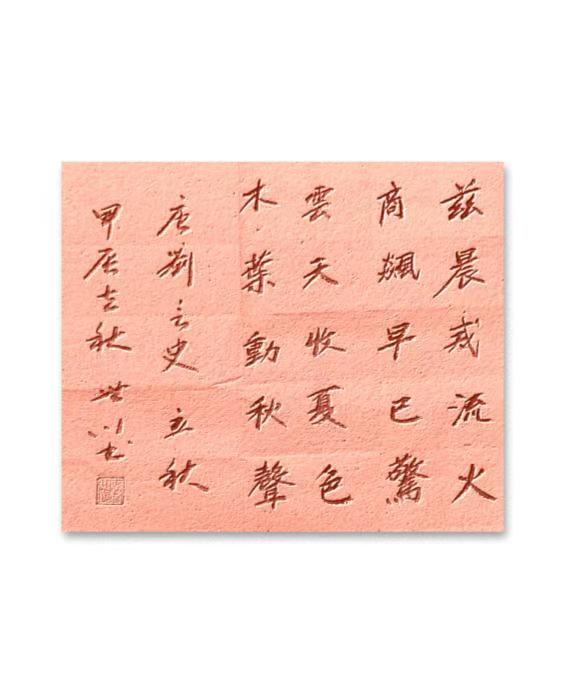 兹晨戒流火
商飙早已驚
雲天收夏色
木葉動秋聲
唐劉言史 立秋
甲辰立秋